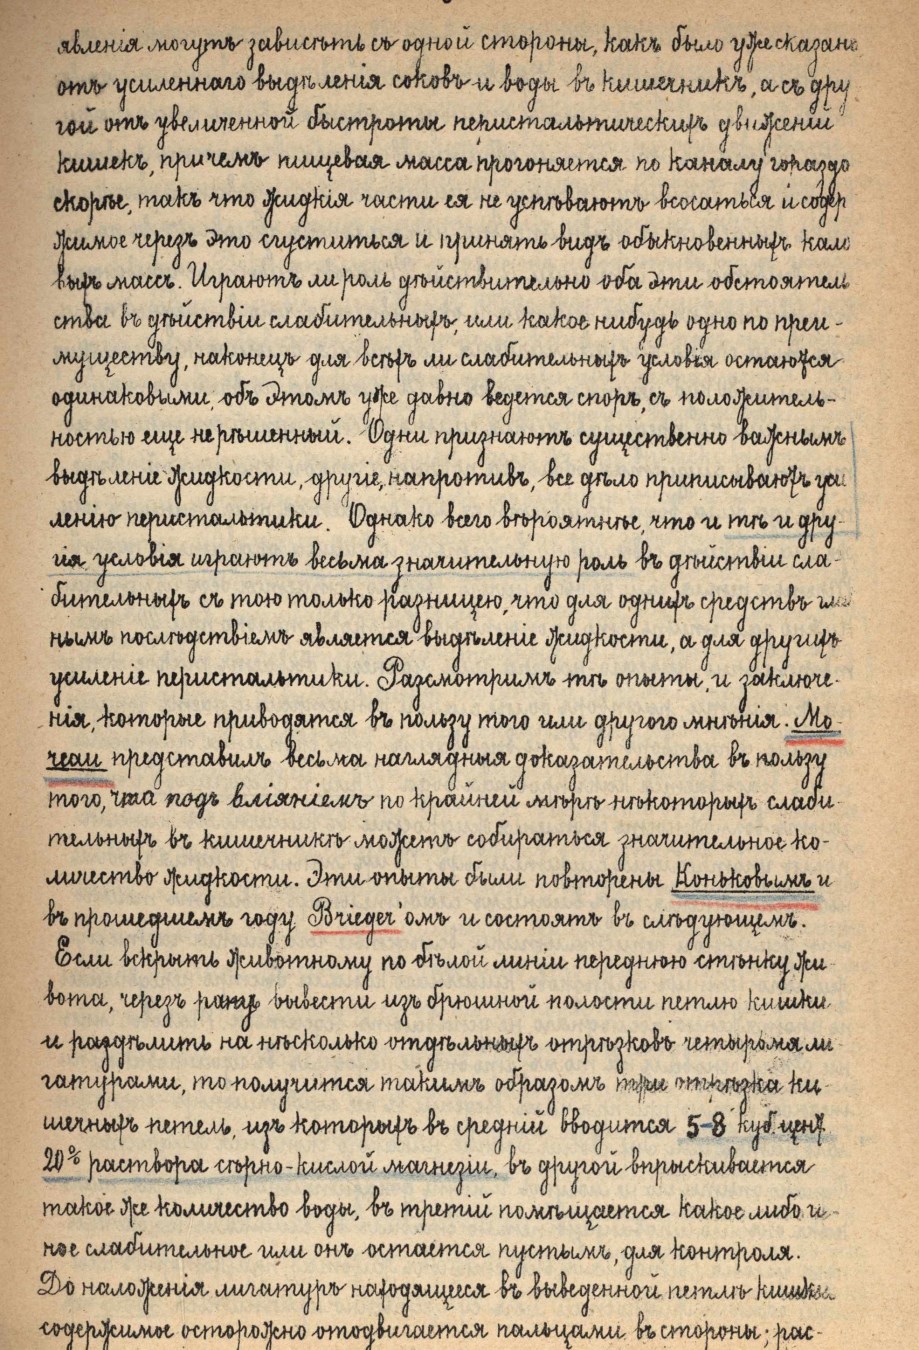 явленія могутъ зависѣть съ одной стороны, какъ было уже сказано
отъ усиленнаго выдѣленія соковъ и воды въ кишечникъ, а съ дру
гой отъ увеличенной быстроты перистальтическихъ движеній
кишекъ, причемъ пищевая масса прогоняется по каналу гораздо
скорѣе, такъ что жидкія части ея не успѣваютъ всосаться и содер
жимое черезъ это сгуститься и принять видъ обыкновенныхъ кало
выхъ массъ. Играютъ ли роль дѣйствительно оба эти обстоятель
ства въ дѣйствіи слабительныхъ, или какое нибудь одно по преи-
муществу, наконецъ для всѣхъ ли слабительныхъ условія остаются
одинаковыми, объ этомъ уже давно ведется споръ, съ положитель-
ностью еще не рѣшенный. Одни признаютъ существенно важнымъ
выдѣленіе жидкости, другіе, напротивъ, все дѣло приписываютъ уси
ленію перистальтики. Однако всего вѣроятнѣе, что и тѣ и дру-
гія условія играютъ весьма значительную роль въ дѣйствіи сла-
бительныхъ съ тою только разницею, что для однихъ средствъ
нымъ послѣдствіемъ является выдѣленіе жидкости, а для другихъ
усиленіе перистальтики. Разсмотримъ тѣ опыты, и заключе-
нія, которые приводятся въ пользу того или другого мнѣнія. Мо-
чеаи представилъ весьма наглядныя доказательства въ пользу
того, что подъ вліяніемъ по крайней мѣрѣ нѣкоторыхъ слаби-
тельныхъ въ кишечникѣ можетъ собираться значительное ко-
личество жидкости. Эти опыты были повторены Коньковымъ и
въ прошедшемъ году Brieger'омъ и состоятъ въ слѣдующемъ.
Если вскрыть животному по бѣлой линіи переднюю стѣнку жи-
вота, черезъ рану вывести изъ брюшной полости петлю кишки
и раздѣлить на нѣсколько отдѣльныхъ отрѣзковъ четырьмя ли-
гатурами, то получится такимъ образомъ три отрѣзка ки-
шечныхъ петель, изъ которыхъ въ средній вводится 5-8 куб. цент.
20% раствора сѣрно-кислой магнезіи, въ другой впрыскивается
такое же количество воды, въ третій помѣщается какое либо и-
ное слабительное или онъ остается пустымъ, для контроля.
До наложенія лигатуръ находящееся въ выведенной петлѣ кишки
содержимое осторожно отодвигается пальцами въ стороны; рас-